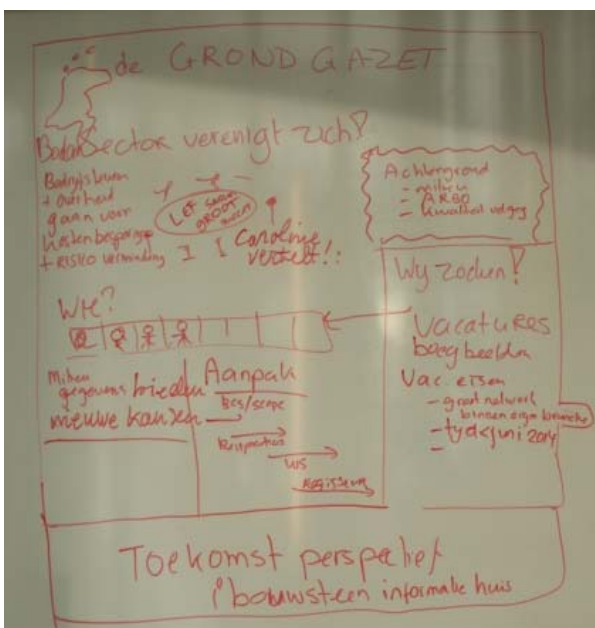 de GROND GAZET
Bodemsector verenigt zich!
Bedrijfsleven
+ overheid
gaan voor
kostenbesparing
+ RISICO vermindering
LEF
GROOT
Caroline
vertelt!:
Achtergrond
- milieu
- ARBO
- kwaliteit
Wij zoeken!
Vacatures
boegbeelden
Vac. eisen
- groot netwerk
binnen eigen branche
- tyd < juni 2014
-
Wie?
Milieu
gegevens bieden
nieuwe kansen
Aanpak
BCS/scope
WS
Toekomst perspectief
bouwsteen informatie huis